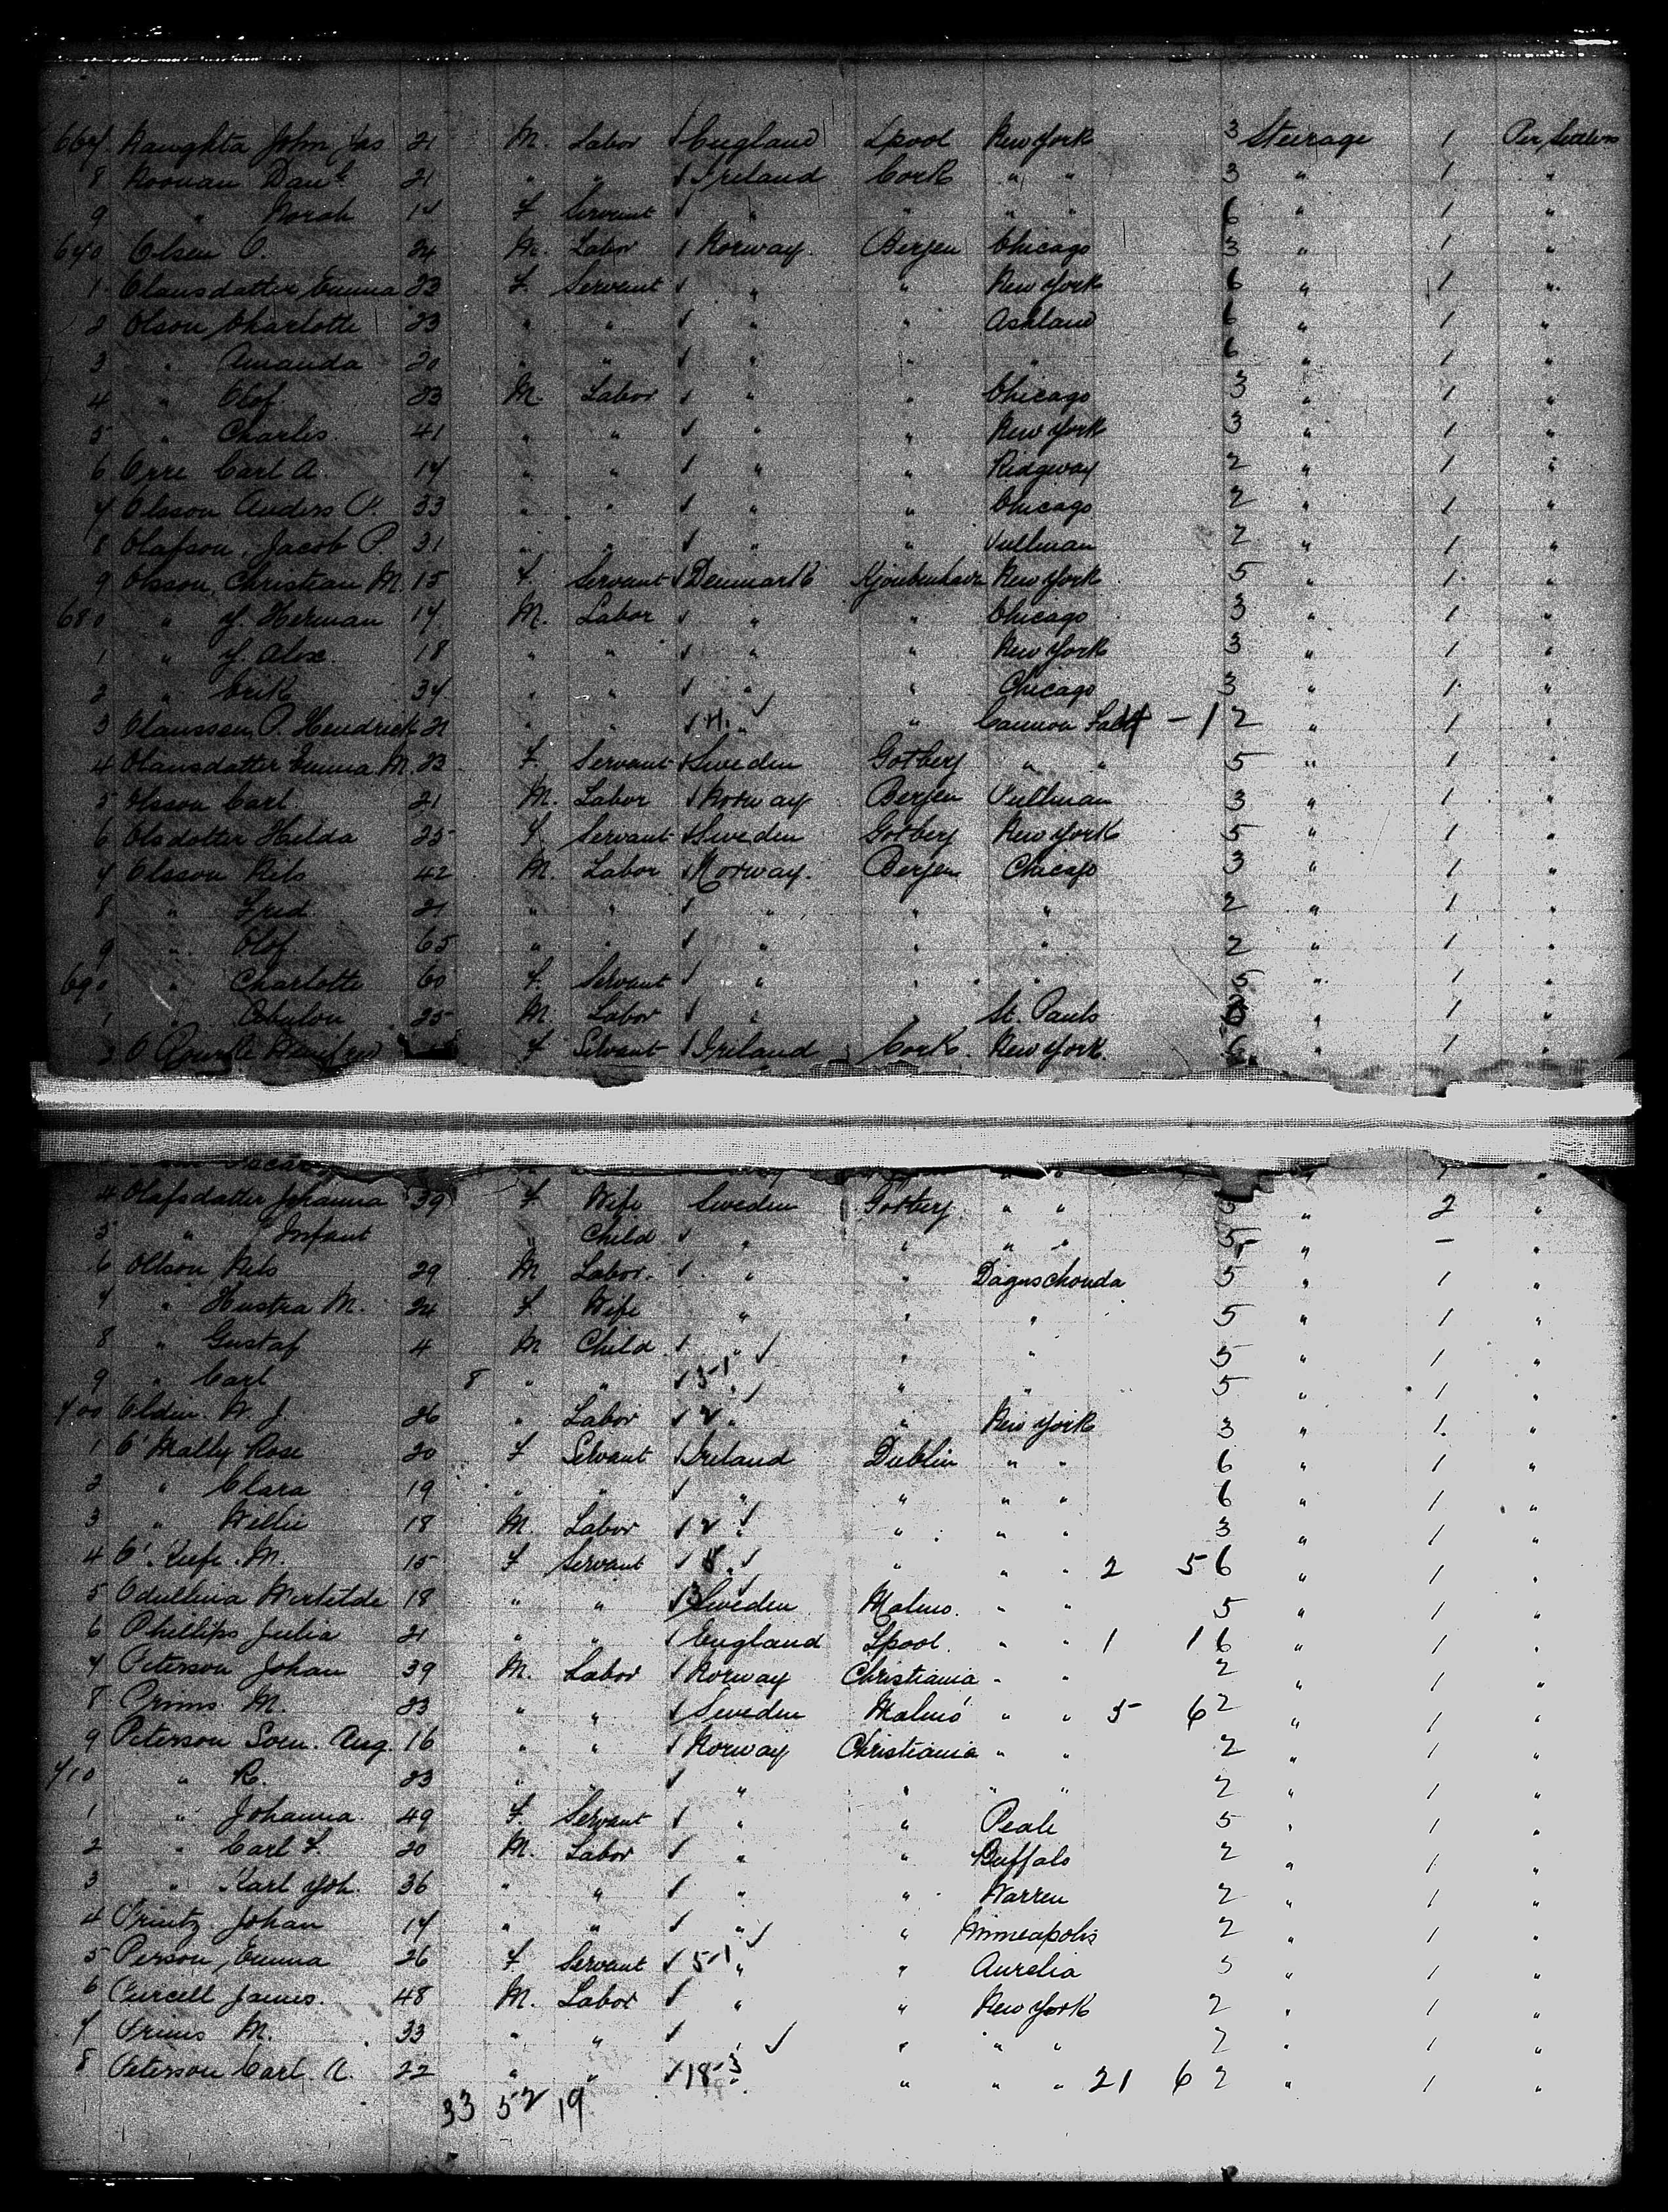 667 Naughta John Jas 21 M. Labor England Lpool New York 3 Steerage 1 Per, Settlers
8 Noonan Danl. 21 " " Ireland Cork " " 3 " 1 "
9 " Norah 14 F Servant " " " " 6 " 1 "
670 Olsen O. 24 M. Labor Norway. Bergen Chicago 3 " 1 "
1 Olausdatter Emma 23 F. Servant " " New York 6 " 1 "
2 Olson Charlotte 23 " " " " Ashland 6 " 1 "
3 " Amanda 20 " " " " " 6 " 1 "
4 " Olof. 23 M. Labor " " Chicago 3 " 1 "
5 " Charles. 41 " " " " New York 3 " 1 "
6 Orre Carl A. 17 " " " " Ridgway 2 " 1 "
7 Olsson Anders P. 33 " " " " Chicago 2 " 1 "
8 Olafson, Jacob P. 31 " " " " Pullman 2 " 1 "
9 Olsson, Christian M. 15 F. Servant Denmark Kjoubenhavn New York 5 " 1 "
680 " J. Herman 17 M. Labor " " Chicago 3 " 1 "
1 " J. Alex. 18 " " " " New York 3 " 1 "
2 " Erik 34 " " " " Chicago 3 " 1 "
3 Olaussen, P. Hendrick 21 " " " " Cannon Falls - 1 2 " 1 "
4 Olausdatter Emma. M. 23 F. Servant Sweden Gotberg " " 5 " 1 "
5 Olsson Carl 21 M. Labor Norway Bergen Pullman 3 " 1 "
6 Olsdotter Hulda 25 F Servant Sweden Gotberg New York 5 " 1 "
7 Olsson Nils 42 M. Labor Norway. Bergen Chicago 3 " 1 "
8 " Fred. 21 " " " " " 2 " 1 "
9 " Olof 65 " " " " " 2 " 1 "
690 " Charlotte 60 F. Servant " " " 5 " 1 "
1 " 25 M. Labor " " St. Pauls 3 " 1 "
2 F Servant Ireland Cork. New York. 6 " 1 "
4 Olafsdatter Johanna 39 F Wife Sweden Gotberg " " 5 " 2 "
5 " " Infant " Child " " " " 5 " - "
6 Olson Nils 29 M Labor. " " Daguschonda 5 " 1 "
7 " Hustra M. 24 F. Wife " " " 5 " 1 "
8 " Gustaf 4 M Child " " " 5 " 1 "
9 " Carl 8 " " 5 1 " " " 5 " 1 "
700 Oldin. N. J. 26 " Labor 2 " " New York 3 " 1. "
1 O'Mally Rose 20 F Servant Ireland Dublin " " 6 " 1 "
2 " Clara 19 " " " " " " 6 " 1 "
3 " Willie 18 M. Labor 2 " " " " 3 " 1 "
4 O'Keefe. M. 15 F Servant 8 " " " " 2 5 6 " 1 "
5 Odullina Mertilde 18 " " 3 Sweden Malmo. " " 5 " 1 "
6 Phillips Julia 21 " " England Lpool. " " 1 1 6 " 1 "
7 Peterson Johan 39 M. Labor Norway Christiania " " 2 " 1 "
8 Prims M. 23 " " Sweden Malmo " " 5 6 2 " 1 "
9 Peterson Sorn. Aug. 16 " " Norway Christiania " " 2 " 1 "
710 " R. 23 " " " " " " 2 " 1 "
1 " Johanna. 49 F. Servant " " Peale 5 " 1 "
2 " Carl F. 20 M. Labor " " Buffalo 2 " 1 "
3 " Karl Joh. 36 " " " " Warren 2 " 1 "
4 Printz Johan 17 " " " " Minneapolis 2 " 1 "
5 Person, Emma 26 F Servant 5 1 " " Aurelia 5 " 1 "
6 Purcell James. 48 M. Labor " " New York 2 " 1 "
7 Prims M. 33 " " " " " " 2 " 1 "
8 Peterson Carl. A. 22 " " 18 3 " " " " 21 6 2 " 1 "
33 52 19